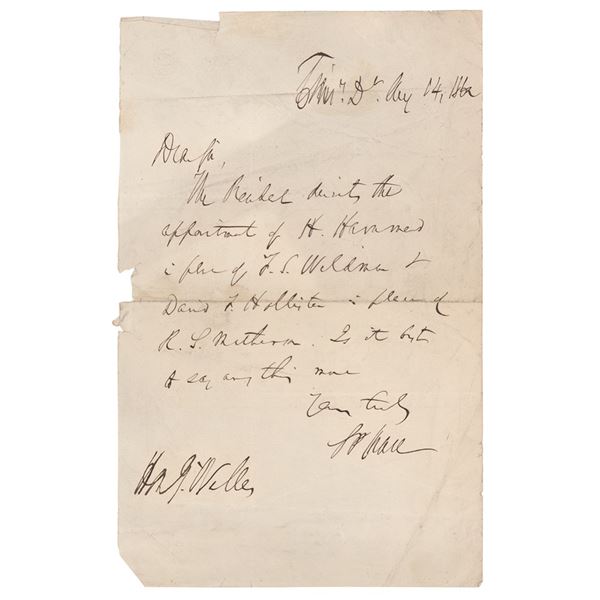 Aug 14, 1862
Dear Sir,
The President directs the
appointment of H. Hammond
in place of F. S. Wildman &
David F. Hollister in place of
R. S. Mathewson. Is it best
to say any thing more
Yours truly
SPChase
Hon G. Welles